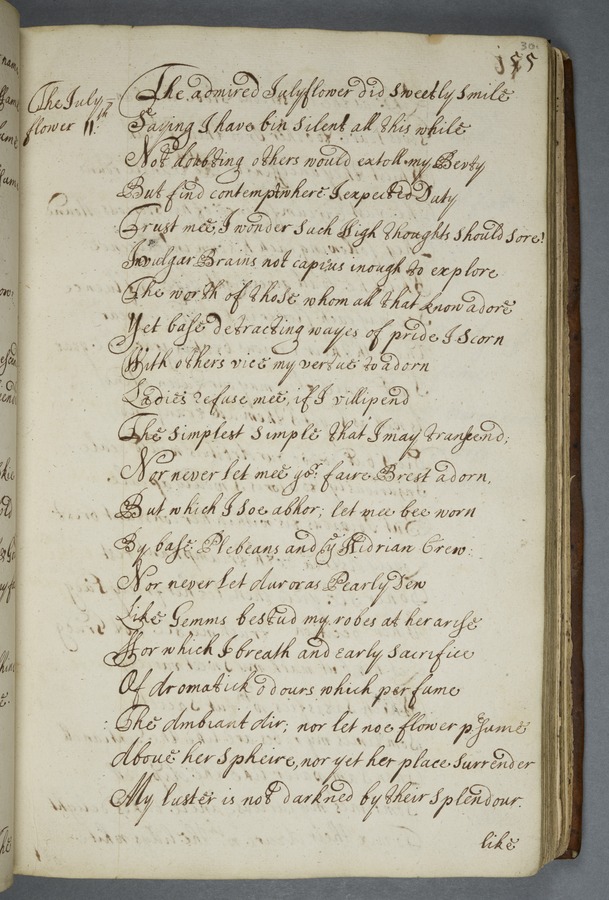 30.
155
The July
flower 11th
The admired Julyflower did sweetly smile
Saying I have bin silent all this while
Not doubting others would extoll my Bevty
But find contempt where I expected Duty
Trust mee, I wonder such High thoughts should sore!
In vulgar Brains not capi'us inough to explore
The worth of those whom all that know adore
Yet base detracting wayes of pride I scorn
With others vice my vertue to adorn
Ladies refuse mee, if I villipend
The simplest simple that I may transcend;
Nor never let mee yor: faire Brest adorn,
But which I soe abhor; let mee bee worn
By base Plebeans and by Hidrian Crew:
Nor never let Auroras Pearly Dew
Like Gemms bestud my robes at her arise
ffor which I breath and early sacrifice
Of Aromatick odours which perfume
The Ambiant Air; nor let noe flower p'sume
Above her Spheire, nor yet her place surrender
My luster is not darkned by their splendour.
like